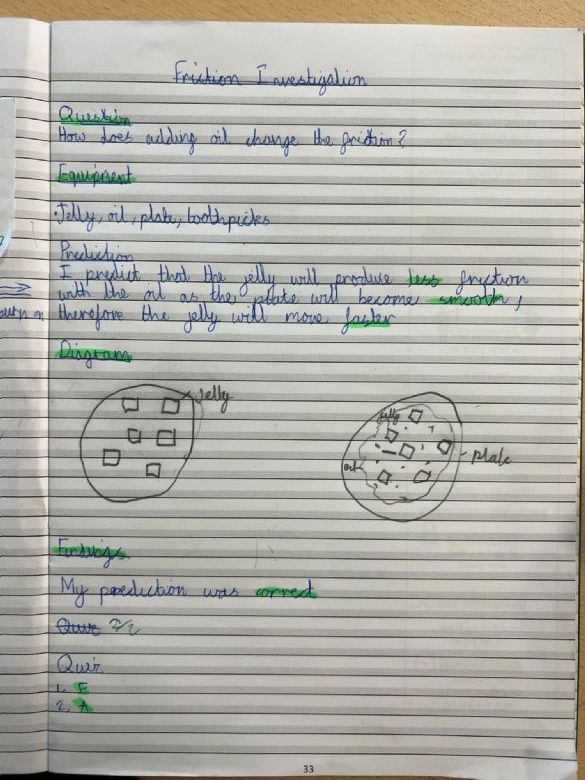 Friction Investigation
Question
How does adding oil change the friction?
Equipment
Jelly, oil, plate, toothpicks
Prediction
I predict that the jelly will produce less friction
with the oil as the plate will become smooth,
therefore the jelly will move faster
Diagram
Jelly
jelly
oil
plate
Findings
My prediction was correct
Quiz 2/2
Quiz
1. E
2. A
33